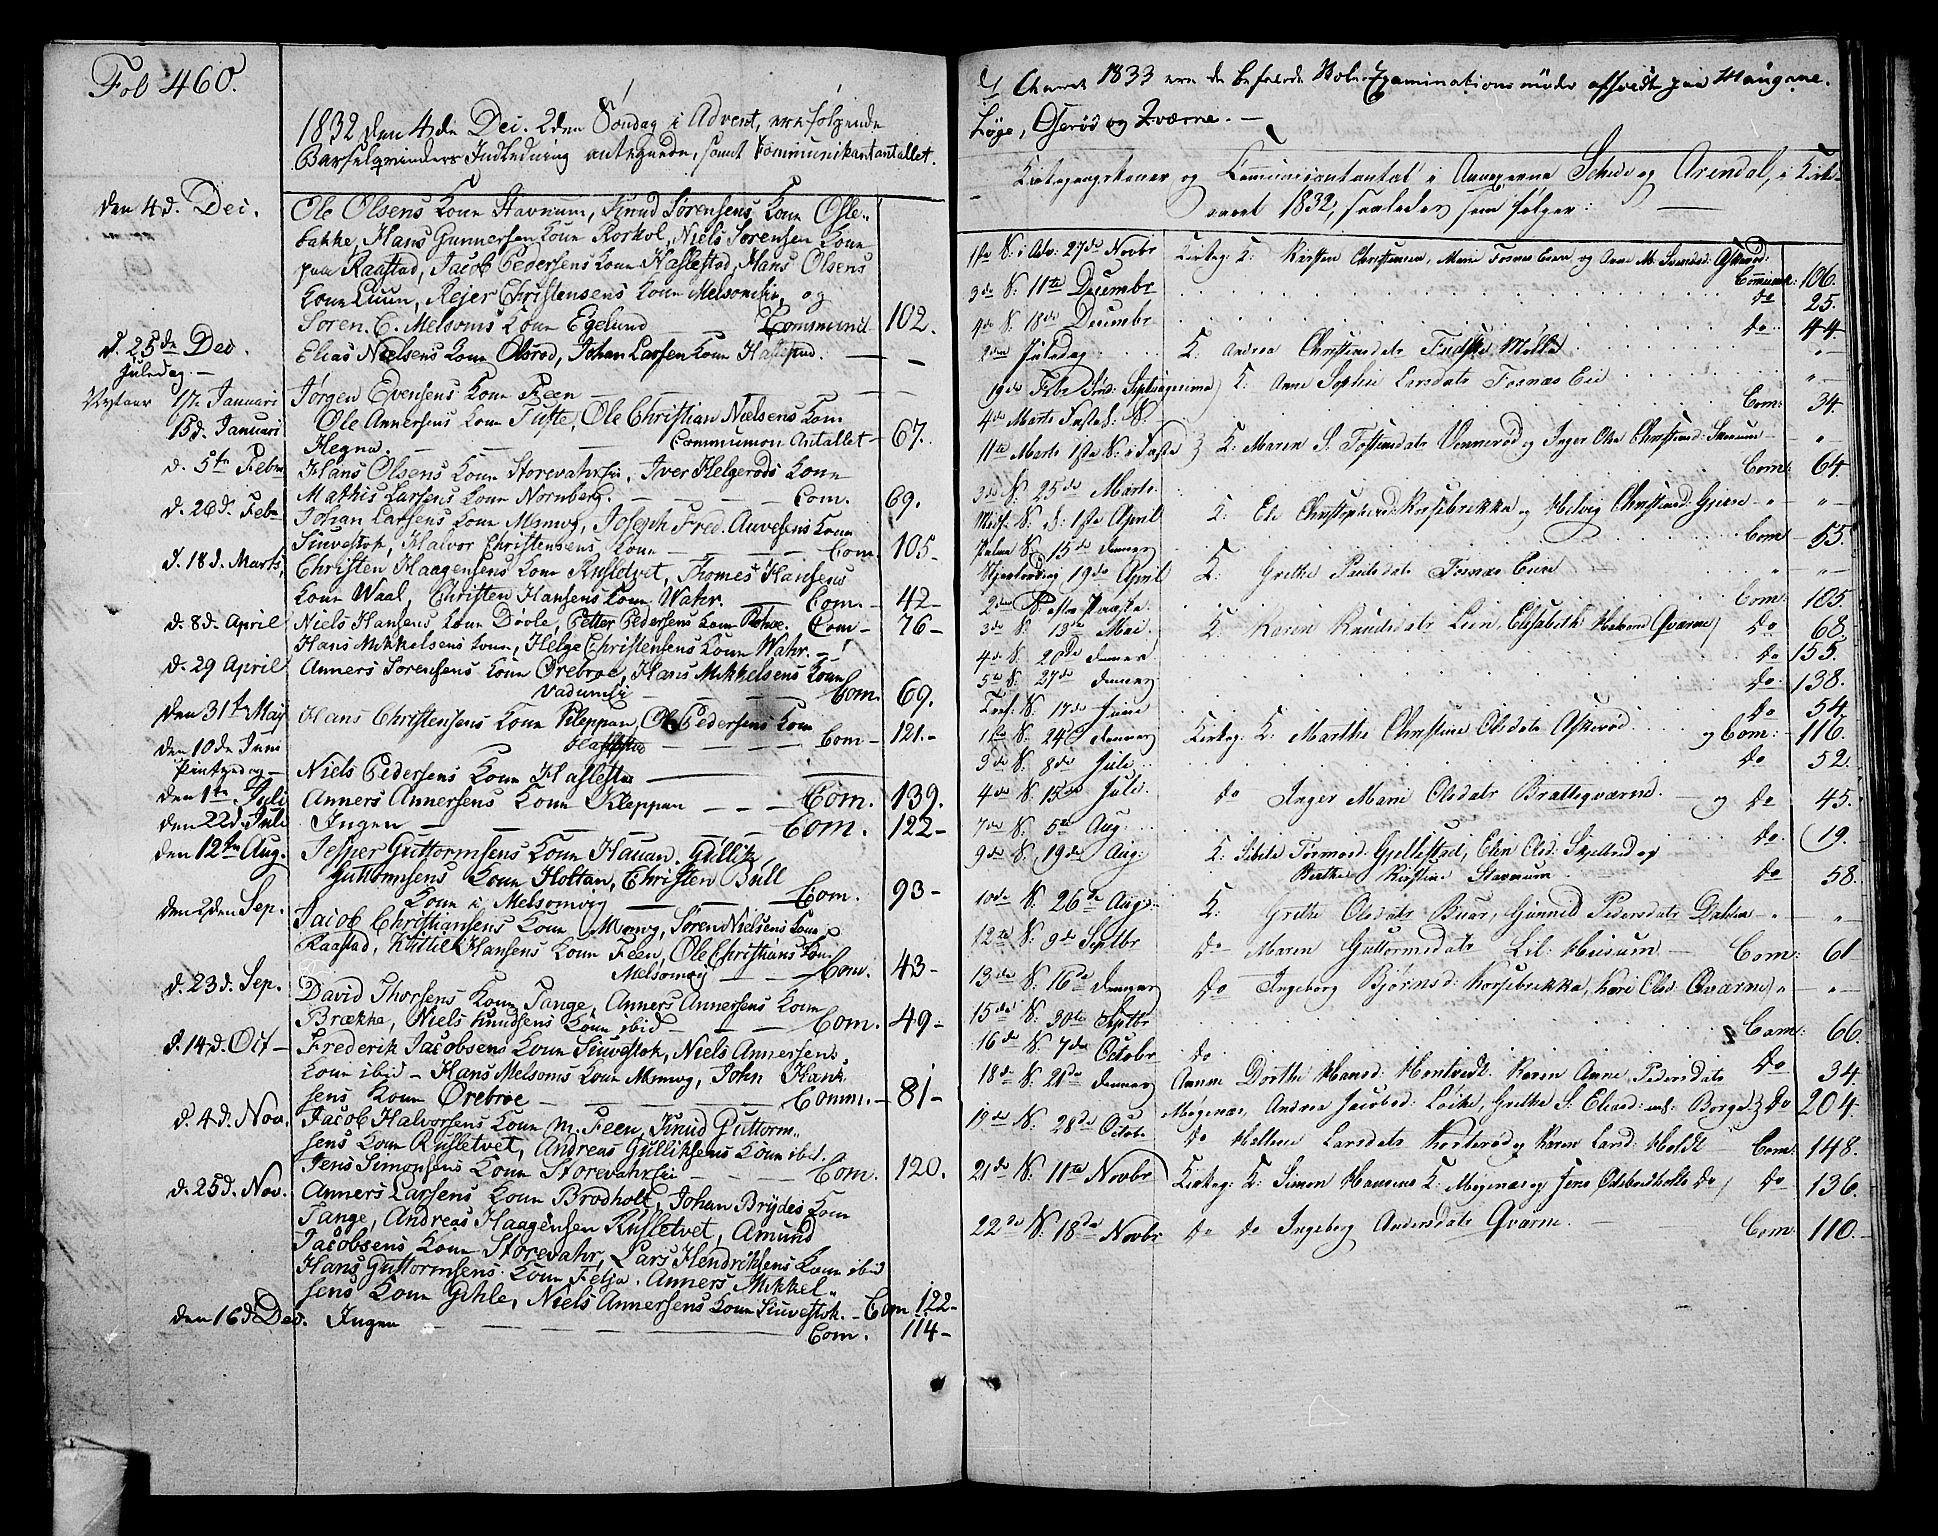 Fol 460.
1832 den 4de Dec. 2den Søndag i Advent, ere følgende
Barselqvinders Indledning antegnede, samt Kommunikantantallet.
den 4d. Dec. Ole Olsens Kone Stavnum, Knud Sørensens Kone Ofle-
bakke, Hans Gunnersen Kone Korkol, Niels Sørensen Kone
paa Raastad, Jacob Pedersens Kone Haslestad, Hans Olsens
Kone Luun, Rejer Christensens Kone Melsomvig, og
Søren C. Melsoms Kone Egelund — Communic 102.
d. 25de Dec. Elias Nielsens Kone Olsrød, Johan Larsen Kone Haslestad. — —
Juledag. —
Nytaar 1/7. Januari Jørgen Evensens Kone Feen — —
15d. Januari Ole Annersens Kone Tufte, Ole Christian Nielsens Kone
Hegna. — Communion Antallet — 67.
d. 5te Febr Hans Olsens Kone Storevahrsei, Iver Helgerøds Kone
Mathis Larsens Kone Nornberg. — Com. 69.
d. 26d. Febr Johan Larsens Kone Msmvig, Joseph Fred. Auvesens Kone
Siuvestok, Halvor Christensens Kone — Com. 105-
d. 18d. Marts, Christen Haagensens Kone Rusletvet, Thomes Hansens
Kone Waal, Christen Hansens Kone Wahr. — Com. - 42-
d. 8d. April Niels Hansens Kone Døole, Petter Pedersens Kone Com - 76-
Hans Mikkelsens Kone, Helge Christensens Kone Wahr. -
d. 29 April Anners Sørensens Kone Ørebroe, Hans Mikkelsens Kone
Vadumsei — Com. 69.
den 31te May Hans Christensens Kone Kleppan, Ole Pedersens Kone
Haslestad — Com - 121.-
den 10de Juni
Pintsedag — Niels Pedersens Kone Haslestad —
den 1te Juli Anners Annersens Kone Kleppan — Com. 139.
den 22d. Juli Ingen — Com. 122-
den 12te Aug. Jesper Guttormsens Kone Hauan, Gullik
Guttormsens Kone Holtan, Christen Bull
Kone i Melsomvig — Com. 93-
den 2den Sep. Jacob Christiansens Kone Msmvg, Søren Nielsens Kone
Raastad, Kittil Hansens Kone Feen, Ole Christians Kone
Melsomvig — Com. 43-
d. 23d. Sep. David Thorsens Kone Tange, Anners Annersens Kone
Brække, Niels Knudsens Kone ibid — Com. 49-
d. 14d. Oct — Frederik Jacobsens Kone Siuvestok, Niels Annersens
Kone ibid — Hans Melsoms Kone Msmvg, John Han-
sens Kone Ørebroe — Comm. - 81-
d. 4d. Nov. Jacob Halvorsens Kone M. Feen, Knud Guttorm-
sens Kone Rusletvet, Andreas Gulliksens Kone ibid.
Jens Simonsens Kone Storevahrsei — Com. 120.
d. 25d. Nov. Anners Larsens Kone Brodholt, Johan Brydes Kone
Tange, Andreas Haagensen Rusletvet, Amund
Jacobsens Kone Storevahr, Lars Hendriksens Kone ibid
Hans Guttormsens Kone Felja. Anners Mikkel-
sens Kone Gihle, Niels Annersens Kone Siuvestok. - Com 122-
den 16d Dec. Ingen — Com. 114-
I Aaret 1833 ere de befalede Skole-Examinationsmøder afholdt paa Haugane.
Løge, Oserød og Kværne. —
Kirkegangskoner og Communicantantal i Annexerne Schee og Arendal, i Kirke-
aaret 1832, saaledes som følger: —
1ste S. i Adv. 27de Novbr Kirkeg. K. Kirsten Christensen, Marie Tornæs Eien og Anne M. Svendsd: Askerød
3de S. 11te Decembr Communik: 106.
4de S. 18de Decembr do 25.
do 44
2den Juledag K. Andrea Christensdatr Mølla „ -
19de Febr Sønd. Septuagesima) K. Anne Sophie Larsdatr Tornæs Eie „ —
4de Marts Fastel: S. Com: 34.
11te Marts 1ste S. i Faste } K. Maren S. Tostensdatr Vennerød og Inger Olea Christensd: — „
3de S. 25de Marts Com: 64.
Midf. S. d: 1ste April K. Eli Christophersd Korsebrekke og Helvig Christensd: „ „-
Palme S. 15de denne Com - 55.
Skjertorsdag 19de April K. Grethe Poulsdatr Tornæs Eien „ „-
2den S. efter Paaske Com: 105.
3de S. 13de Mai K. Karen Knudsdatr Lien, Elisabeth Halvorsd Qværne) do 68.
4de S. 20de denne do 155.
5te S. 27de denne do 138.
Tref. S. 17de Juni do 54.
1ste S. 24de denne Kirkeg. K. Marthe Christine Olsdatr Askerød og Com: - 116.
3de S. 8de Juli do 52.
4de S. 15de Juli do Inger Marie Olsdatr Bratteqværne. — og do 45.
7de S. 5te Aug. do (19.
9de S. 19de Aug: K. Sibele Tormosd: Gjellestad, Elen Olsd: Skjelbred og
Berthe Kirstine Stavnum do 58.
10de S. 26de Aug: K. Grethe Olsdatr Buer, Gunnild Pedersdatr Dahlen „ „-
12te S. 9de Septbr do Maren Guttormsdatr Lil: Huseum — Com: 61
13de S. 16de denne do Ingeborg Bjørnsd: Korsebrekke, Kari Olsd: Qværne) „ „-
15de S. 30te Septbr Com: 66.
16de S. 7de Octobr do do 34.
18de S. 21de denne Anne Dorthe Hansd: Hontvedt. Karen Anne Pedersdatr
Mogenæs, Andrea Jacobsd: Løike, Grethe S. Eliasd: Borge } do 204.
19de S. 28de Octobr do Hellene Larsdatr Korterød og Karen Larsd: Holdt Com: 148.
21de S. 11te Novbr Kirkeg. K. Simon Hansens K. Mogenæs og Jens Odsbordholte do) do 136.
22de S. 18de Novbr do do Ingeborg Andersdatr Qværne. — Com: 110.